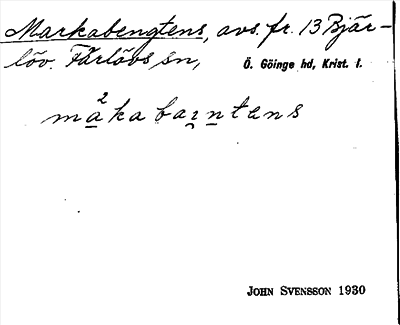 Markabengtens, avs. fr. 13 Bjär-
löv. Färlövs sn, Ö. Göinge hd, Krist. l.
2
makabaıntens
JOHN SVENSSON 1930